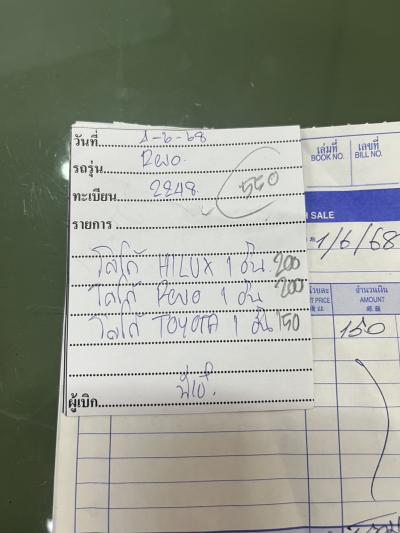 วันที่ 1-6-68
รถรุ่น Revo.
ทะเบียน 2248.
550
รายการ
โลโก้ HILUX 1 อัน 200
โลโก้ Revo 1 อัน 200
โลโก้ TOYOTA 1 อัน 150
ผู้เบิก
เล่มที่ เลขที่
BOOK NO. BILL NO.
SALE
1/6/68
จำนวนเงิน
PRICE AMOUNT
150